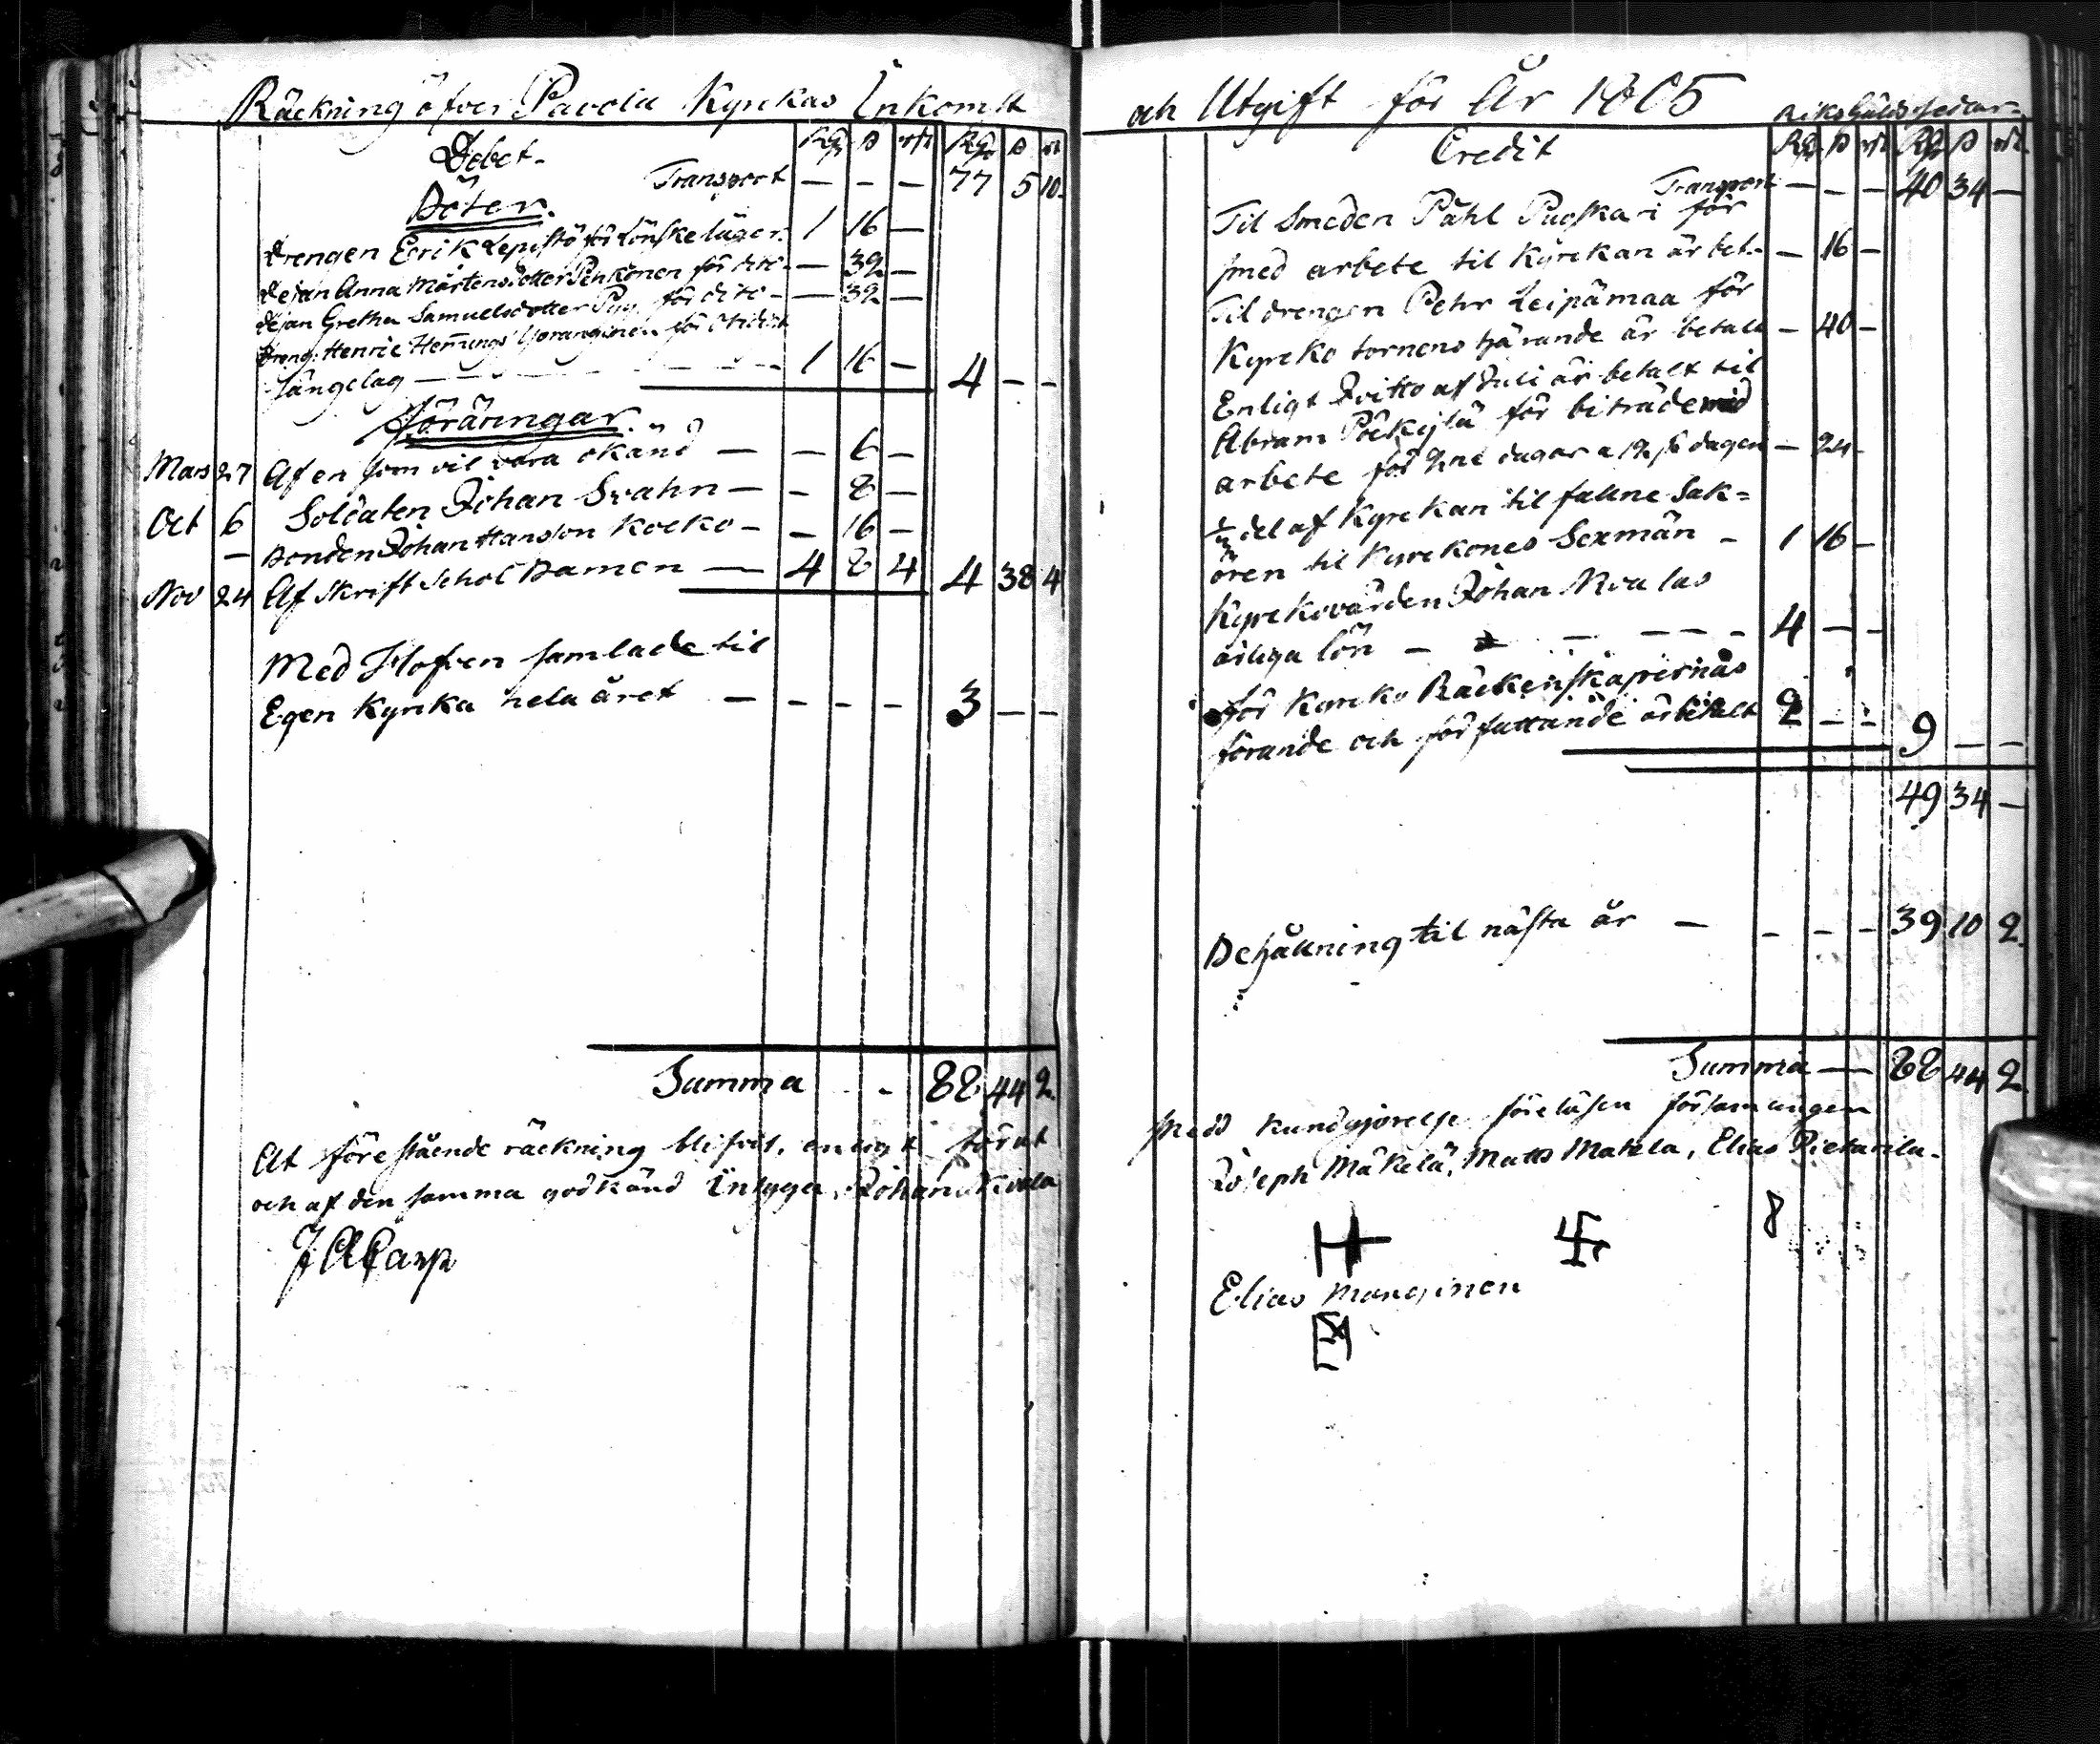 Räckning öfver Pavola Kyrckas Inkomst
Debet. RD ß rst RD ß rst
Transport — — — 77 5 10.
Böter.
Drengen Eerik Lepistö för Lönskeläger. 1 16 —
Dejan Anna Mårtensdotter Penkönen för dito — — 32 —
Dejan Gretha Samuelsdotter för dito — — 32 —
Dreng. Henric Hemmings för otidigt
sängelag — — — 1 16 — 4 — —
Föräringar.
Mars 27 Af en som vil vara okänd — — 6 —
Oct 6 Soldaten Johan Svahn — — 8 —
— Bonden Johan Hansson Kocko — — 16 —
Nov 24 Af Skrift Schol Barnen — 4 8 4 4 38 4
Med Hofven samlade til
Egen Kyrcka hela året — — — — 3 — —
Summa - - 88 44 2.
At förestående räckning blifvit, enligt förut
och af den samma godkänd intyga Johan Nivala
och Utgift för År 1805 Riks Gälds sedlar.
Credit RD ß rst RD ß rst
Transport — — — 40 34 —
Til Smeden Påhl Puoskari för
smed arbete til Kyrckan är bet. — 16 —
Til drengen Pehr Leipämaa för
Kyrcko tornens tjärande är betalt — 40 —
Enligt Qvitto af Juli är betalt til
Abram för biträde vid
arbete för 2ne dagar a 12 ß dagen — 24 -
1/3 del af Kyrckan til fallne Sak=
ören til Kyrckones Sexmän — 1 16 —
Kyrckovärden Johan Nivalas
årliga lön — — — — 4 — —
för Kyrcko Räckenskapernas
förande och författande är betalt 2 — — 9 — —
49 34 —
Behållning til nästa år — — — — 39 10 2.
Summa — 88 44 2
medd kundgjörelse föreläsen församlingen
Joseph Mäkelä, Matts Matela, Elias Pietarila.
8
Elias Manginen